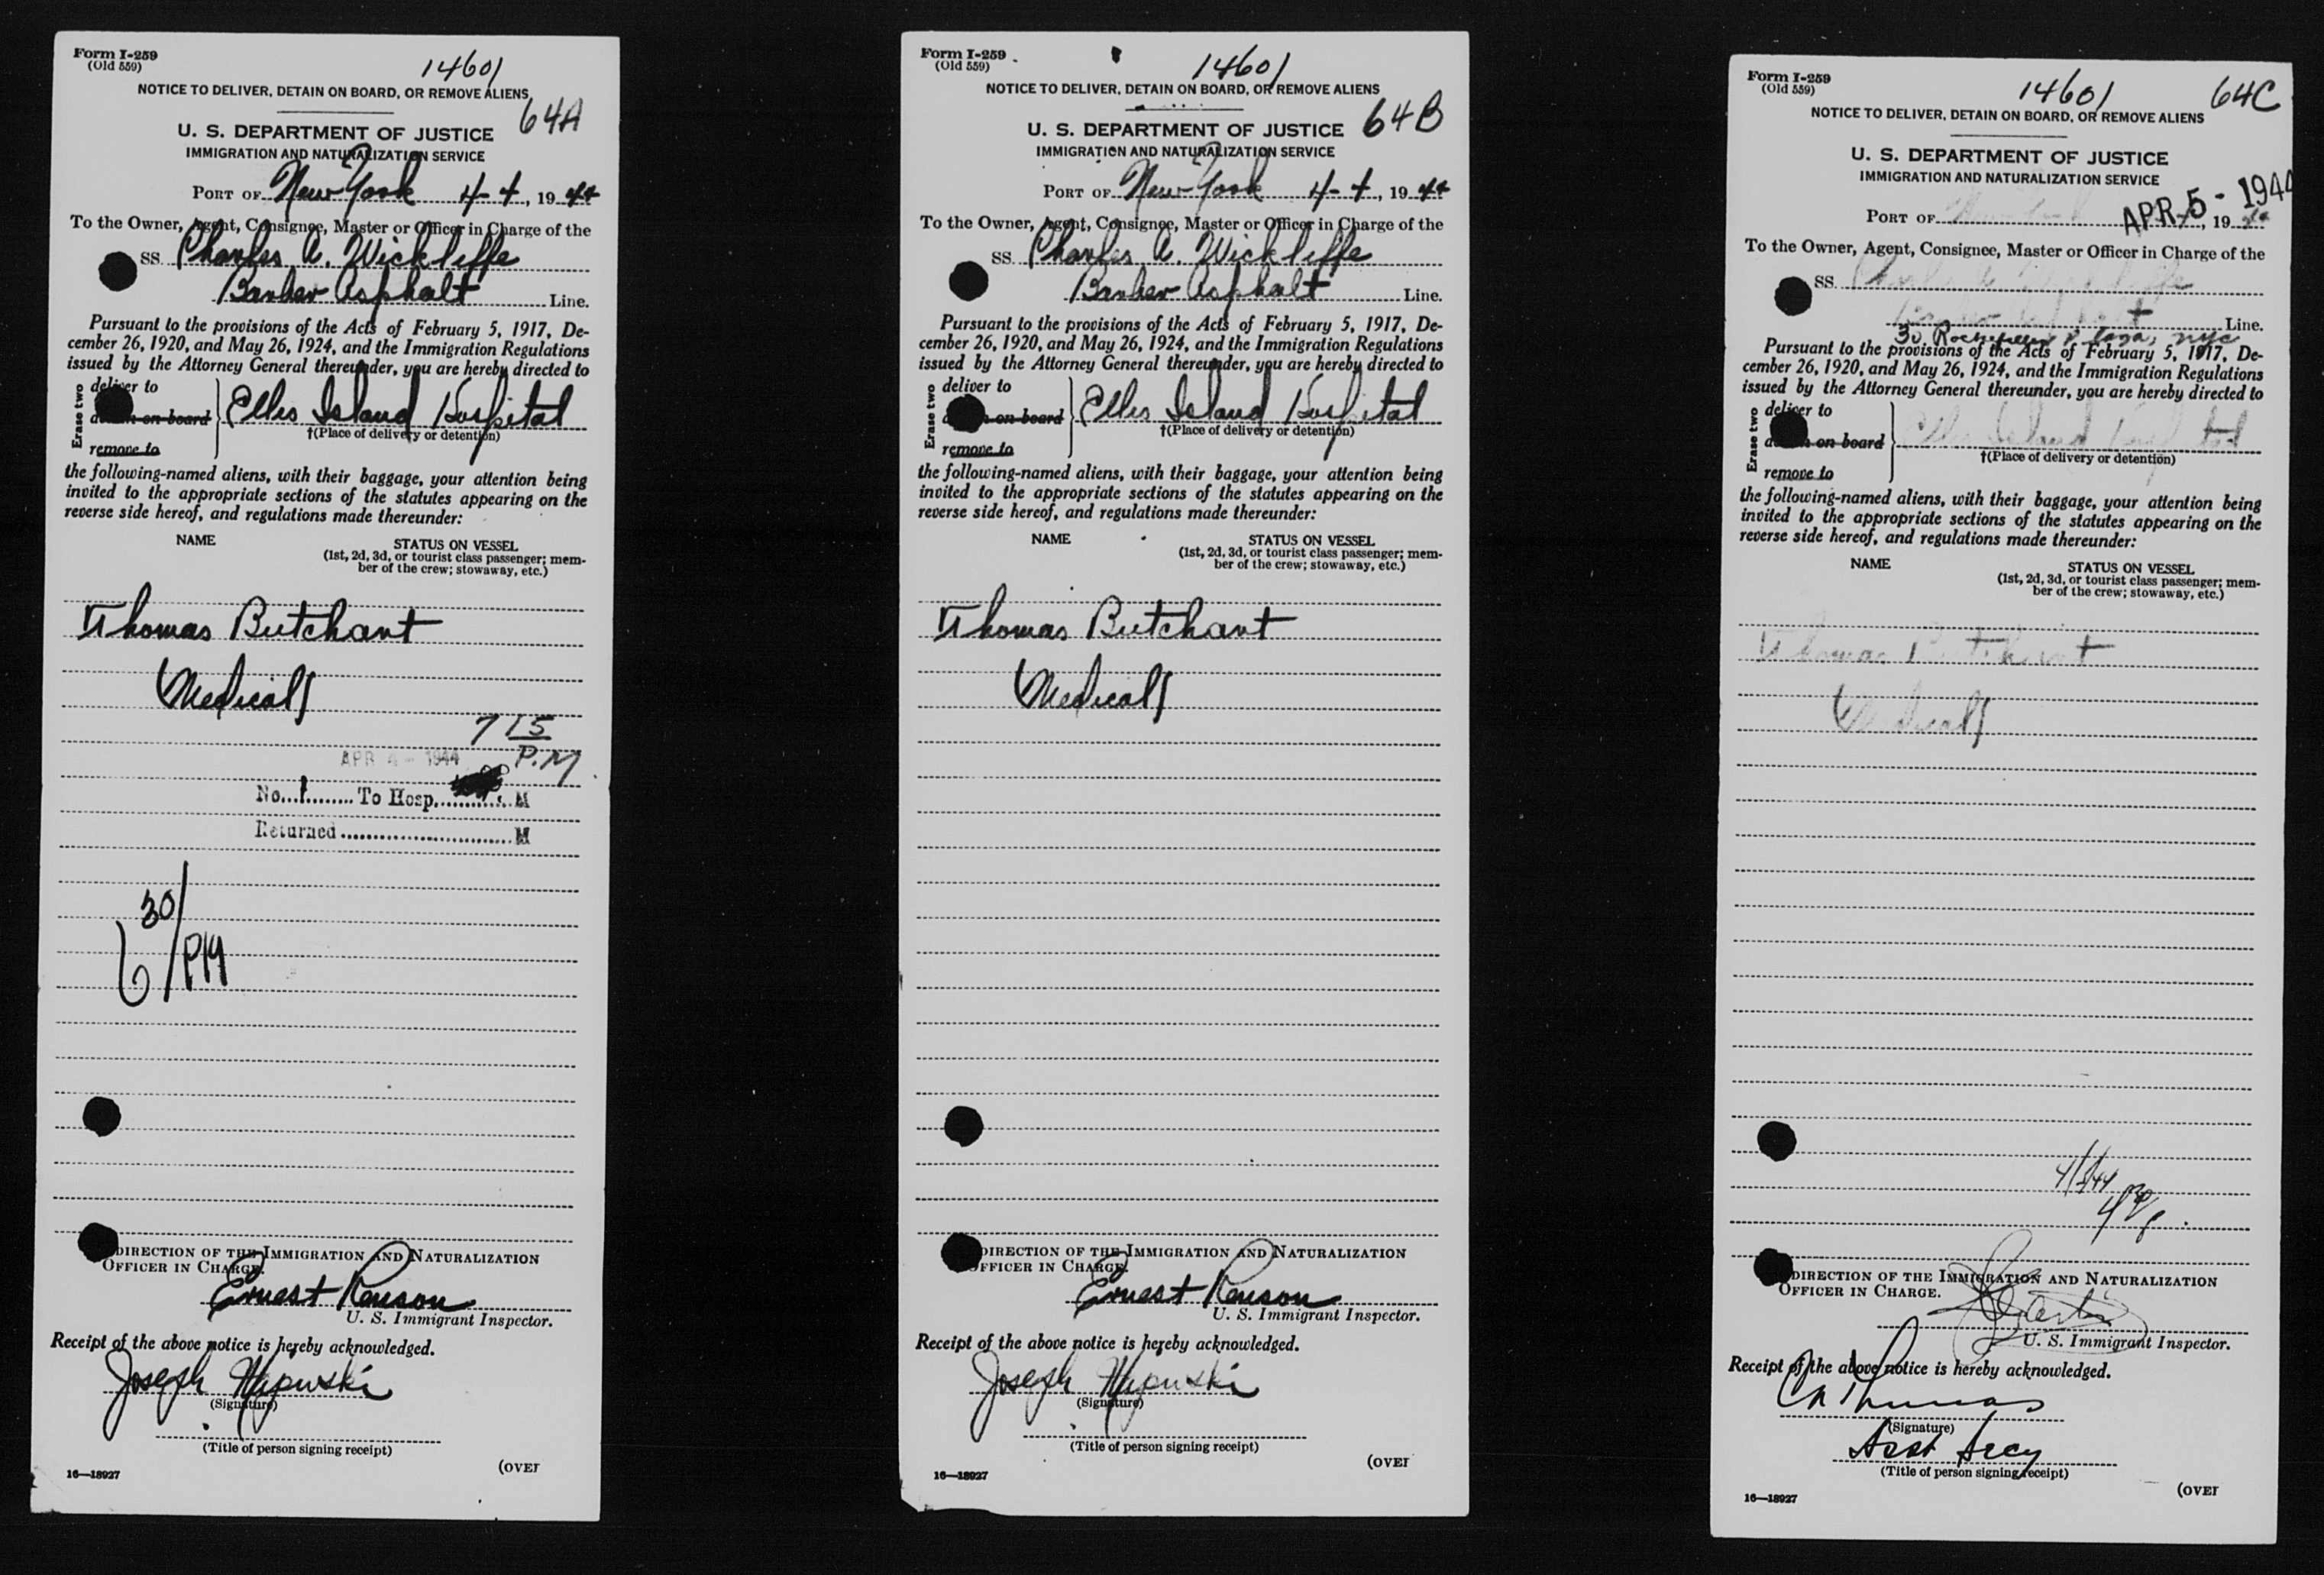 Form I-259
(Old 559)
14601
NOTICE TO DELIVER, DETAIN ON BOARD, OR REMOVE ALIENS
64A
U. S. DEPARTMENT OF JUSTICE
IMMIGRATION AND NATURALIZATION SERVICE
PORT OF New York 4-4, 1944
To the Owner, Agent, Consignee, Master or Officer in Charge of the
SS. Charles A. Wickliffe
Barber Asphalt Line.
Pursuant to the provisions of the Acts of February 5, 1917, De-
cember 26, 1920, and May 26, 1924, and the Immigration Regulations
issued by the Attorney General thereunder, you are hereby directed to
Erase two
deliver to
on board
remove to
Ellis Island Hospital
†(Place of delivery or detention)
the following-named aliens, with their baggage, your attention being
invited to the appropriate sections of the statutes appearing on the
reverse side hereof, and regulations made thereunder:
NAME
STATUS ON VESSEL
(1st, 2d, 3d, or tourist class passenger; mem-
ber of the crew; stowaway, etc.)
Thomas Butchart
Medical
7 15
P.M
APR 4 - 1944
No. 1 To Hosp. M
Returned M
6 30/PM
DIRECTION OF THE IMMIGRATION AND NATURALIZATION
OFFICER IN CHARGE.
Ernest Renson
U. S. Immigrant Inspector.
Receipt of the above notice is hereby acknowledged.
Joseph
(Signature)
(Title of person signing receipt)
16—18927
(OVER
Form I-259
(Old 559)
14601
NOTICE TO DELIVER, DETAIN ON BOARD, OR REMOVE ALIENS
64B
U. S. DEPARTMENT OF JUSTICE
IMMIGRATION AND NATURALIZATION SERVICE
PORT OF New York 4-4, 1944
To the Owner, Agent, Consignee, Master or Officer in Charge of the
SS. Charles A. Wickliffe
Barber Asphalt Line.
Pursuant to the provisions of the Acts of February 5, 1917, De-
cember 26, 1920, and May 26, 1924, and the Immigration Regulations
issued by the Attorney General thereunder, you are hereby directed to
Erase two
deliver to
on board
remove to
Ellis Island Hospital
†(Place of delivery or detention)
the following-named aliens, with their baggage, your attention being
invited to the appropriate sections of the statutes appearing on the
reverse side hereof, and regulations made thereunder:
NAME
STATUS ON VESSEL
(1st, 2d, 3d, or tourist class passenger; mem-
ber of the crew; stowaway, etc.)
Thomas Butchart
Medical
DIRECTION OF THE IMMIGRATION AND NATURALIZATION
OFFICER IN CHARGE.
Ernest Renson
U. S. Immigrant Inspector.
Receipt of the above notice is hereby acknowledged.
Joseph
(Signature)
(Title of person signing receipt)
16—18927
(OVER
Form I-259
(Old 559)
14601
64C
NOTICE TO DELIVER, DETAIN ON BOARD, OR REMOVE ALIENS
U. S. DEPARTMENT OF JUSTICE
IMMIGRATION AND NATURALIZATION SERVICE
PORT OF New York APR 5 - 1944, 19
To the Owner, Agent, Consignee, Master or Officer in Charge of the
SS. Charles A. Wickliffe
Barber Asphalt Line.
30 Rockefeller Plaza, NYC
Pursuant to the provisions of the Acts of February 5, 1917, De-
cember 26, 1920, and May 26, 1924, and the Immigration Regulations
issued by the Attorney General thereunder, you are hereby directed to
Erase two
deliver to
on board
remove to
Ellis Island Hospital
†(Place of delivery or detention)
the following-named aliens, with their baggage, your attention being
invited to the appropriate sections of the statutes appearing on the
reverse side hereof, and regulations made thereunder:
NAME
STATUS ON VESSEL
(1st, 2d, 3d, or tourist class passenger; mem-
ber of the crew; stowaway, etc.)
Thomas Butchart
Medical
DIRECTION OF THE IMMIGRATION AND NATURALIZATION
OFFICER IN CHARGE.
U. S. Immigrant Inspector.
Receipt of the above notice is hereby acknowledged.
Thomas
(Signature)
Asst Secy
(Title of person signing receipt)
16—18927
(OVER